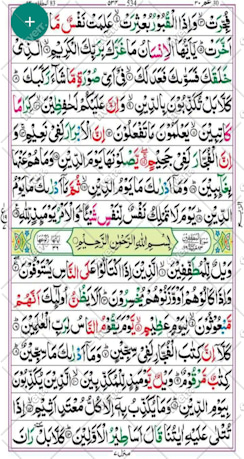 534
فُجِّرَتْ ۙ وَاِذَا الْقُبُوْرُ بُعْثِرَتْ ۙ عَلِمَتْ نَفْسٌ مَّا
اَخَّرَتْ ؕ يٰۤاَيُّهَا الْاِنْسَانُ مَا غَرَّكَ بِرَبِّكَ الْكَرِيْمِ ۙ الَّذِيْ
خَلَقَكَ فَسَوّٰىكَ فَعَدَلَكَ ۙ فِيْۤ اَيِّ صُوْرَةٍ مَّا شَآءَ رَكَّبَكَ ؕ
كَلَّا بَلْ تُكَذِّبُوْنَ بِالدِّيْنِ ۙ وَاِنَّ عَلَيْكُمْ لَحٰفِظِيْنَ ۙ كِرَامًا
كَاتِبِيْنَ ۙ يَعْلَمُوْنَ مَا تَفْعَلُوْنَ اِنَّ الْاَبْرَارَ لَفِيْ نَعِيْمٍ ۚ وَ
اِنَّ الْفُجَّارَ لَفِيْ جَحِيْمٍ ۚ يَّصْلَوْنَهَا يَوْمَ الدِّيْنِ وَمَا هُمْ عَنْهَا
بِغَآئِبِيْنَ ؕ وَمَاۤ اَدْرٰىكَ مَا يَوْمُ الدِّيْنِ ۙ ثُمَّ مَاۤ اَدْرٰىكَ مَا يَوْمُ
الدِّيْنِ ؕ يَوْمَ لَا تَمْلِكُ نَفْسٌ لِّنَفْسٍ شَيْـًٔا ؕ وَالْاَمْرُ يَوْمَئِذٍ لِّلّٰهِ
بِسْمِ اللّٰهِ الرَّحْمٰنِ الرَّحِيْمِ
وَيْلٌ لِّلْمُطَفِّفِيْنَ ۙ الَّذِيْنَ اِذَا اكْتَالُوْا عَلَى النَّاسِ يَسْتَوْفُوْنَ ۖ
وَاِذَا كَالُوْهُمْ اَوْ وَّزَنُوْهُمْ يُخْسِرُوْنَ ؕ اَلَا يَظُنُّ اُولٰٓئِكَ اَنَّهُمْ
مَّبْعُوْثُوْنَ ۙ لِيَوْمٍ عَظِيْمٍ ۙ يَّوْمَ يَقُوْمُ النَّاسُ لِرَبِّ الْعٰلَمِيْنَ ؕ
كَلَّاۤ اِنَّ كِتٰبَ الْفُجَّارِ لَفِيْ سِجِّيْنٍ ؕ وَمَاۤ اَدْرٰىكَ مَا سِجِّيْنٌ ؕ
كِتٰبٌ مَّرْقُوْمٌ ؕ وَيْلٌ يَّوْمَئِذٍ لِّلْمُكَذِّبِيْنَ ۙ الَّذِيْنَ يُكَذِّبُوْنَ
بِيَوْمِ الدِّيْنِ ؕ وَمَا يُكَذِّبُ بِهٖۤ اِلَّا كُلُّ مُعْتَدٍ اَثِيْمٍ ۙ اِذَا
تُتْلٰى عَلَيْهِ اٰيٰتُنَا قَالَ اَسَاطِيْرُ الْاَوَّلِيْنَ ؕ كَلَّا بَلْ رَانَ